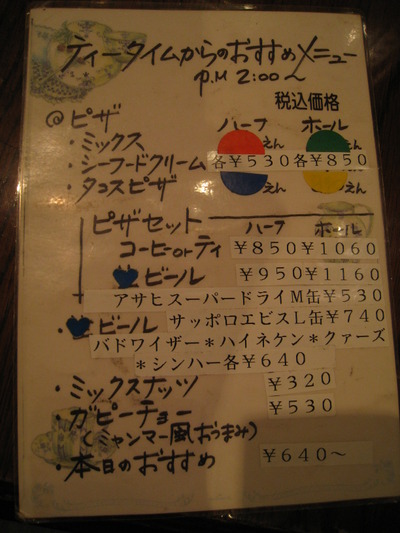 ティータイムからのおすすめメニュー
P.M 2:00〜
税込価格
@ピザ ハーフ ホール
・ミックス えん えん
・シーフードクリーム 各￥530各￥850
・タコスピザ えん えん
ピザセット ハーフ ホール
コーヒーorティ ￥850￥1060
ビール ￥950￥1160
アサヒスーパードライM缶￥530
・ビール サッポロエビスL缶￥740
バドワイザー＊ハイネケン＊クァーズ
＊シンハー各￥640
・ミックスナッツ ￥320
・ガピーチョー ￥530
(ミャンマー風おつまみ)
・本日のおすすめ ￥640〜